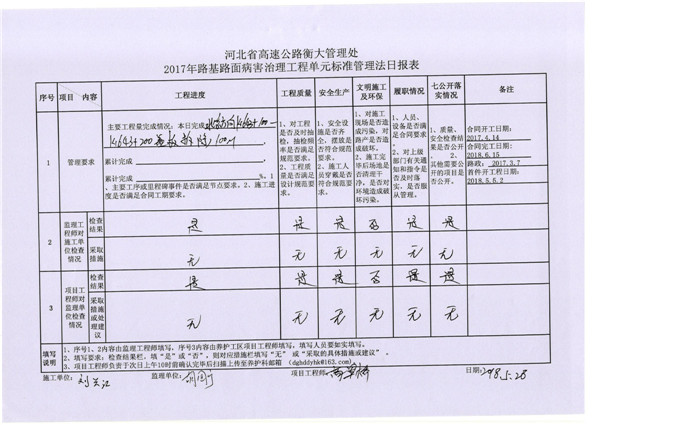 河北省高速公路衡大管理处
2017年路基路面病害治理工程单元标准管理法日报表
序号 项目 内容 工程进度 工程质量 安全生产 文明施工及环保 履职情况 七公开落实情况 备注
1 管理要求
主要工程量完成情况：本日完成
100M
累计完成
累计完成 %。1
、主要工序或里程碑事件是否满足节点要求。2、施工进度是否满足合同工期要求。
1、对工程是否及时抽检，抽检频率是否满足规范要求。
2、工程质量是否满足设计规范要求。
1、安全设施是否齐全，摆放是否符合规范要求。
2、施工人员穿戴是否符合规范要求。
1、对施工现场是否造成污染，对路产是否造成破坏。
2、施工完毕后场地是否清理干净，是否对环境造成破坏污染。
1、人员、设备是否满足合同要求。
2、对上级部门有关通知和指令是否及时落实，是否服从管理。
1、质量、安全检查结果是否公开。2、其他需要公开的项目是否公开。
合同开工日期：
2017.4.14
合同完工日期：
2018.6.15
路政：2017.3.7
首件开工日期：
2018.5.2
2 监理工程师对施工单位检查情况
检查结果 是 是 是 否 是 是
采取措施 无 无 无 无 无 无
3 项目工程师对监理单位检查情况
检查结果 是 是 是 否 是 是
采取措施或处理建议 无 无 无 无 无 无
填写说明
1、序号1、2内容由监理工程师填写，序号3内容由养护工区项目工程师填写，填写人员要如实填写。
2、填写要求：检查结果栏，填“是”或“否”，则对应措施栏填写“无”或“采取的具体措施或建议”。
3、项目工程师负责于次日上午10时前确认完毕后扫描上传至养护科邮箱
施工单位： 监理单位： 项目工程师： 日期：2018.5.28